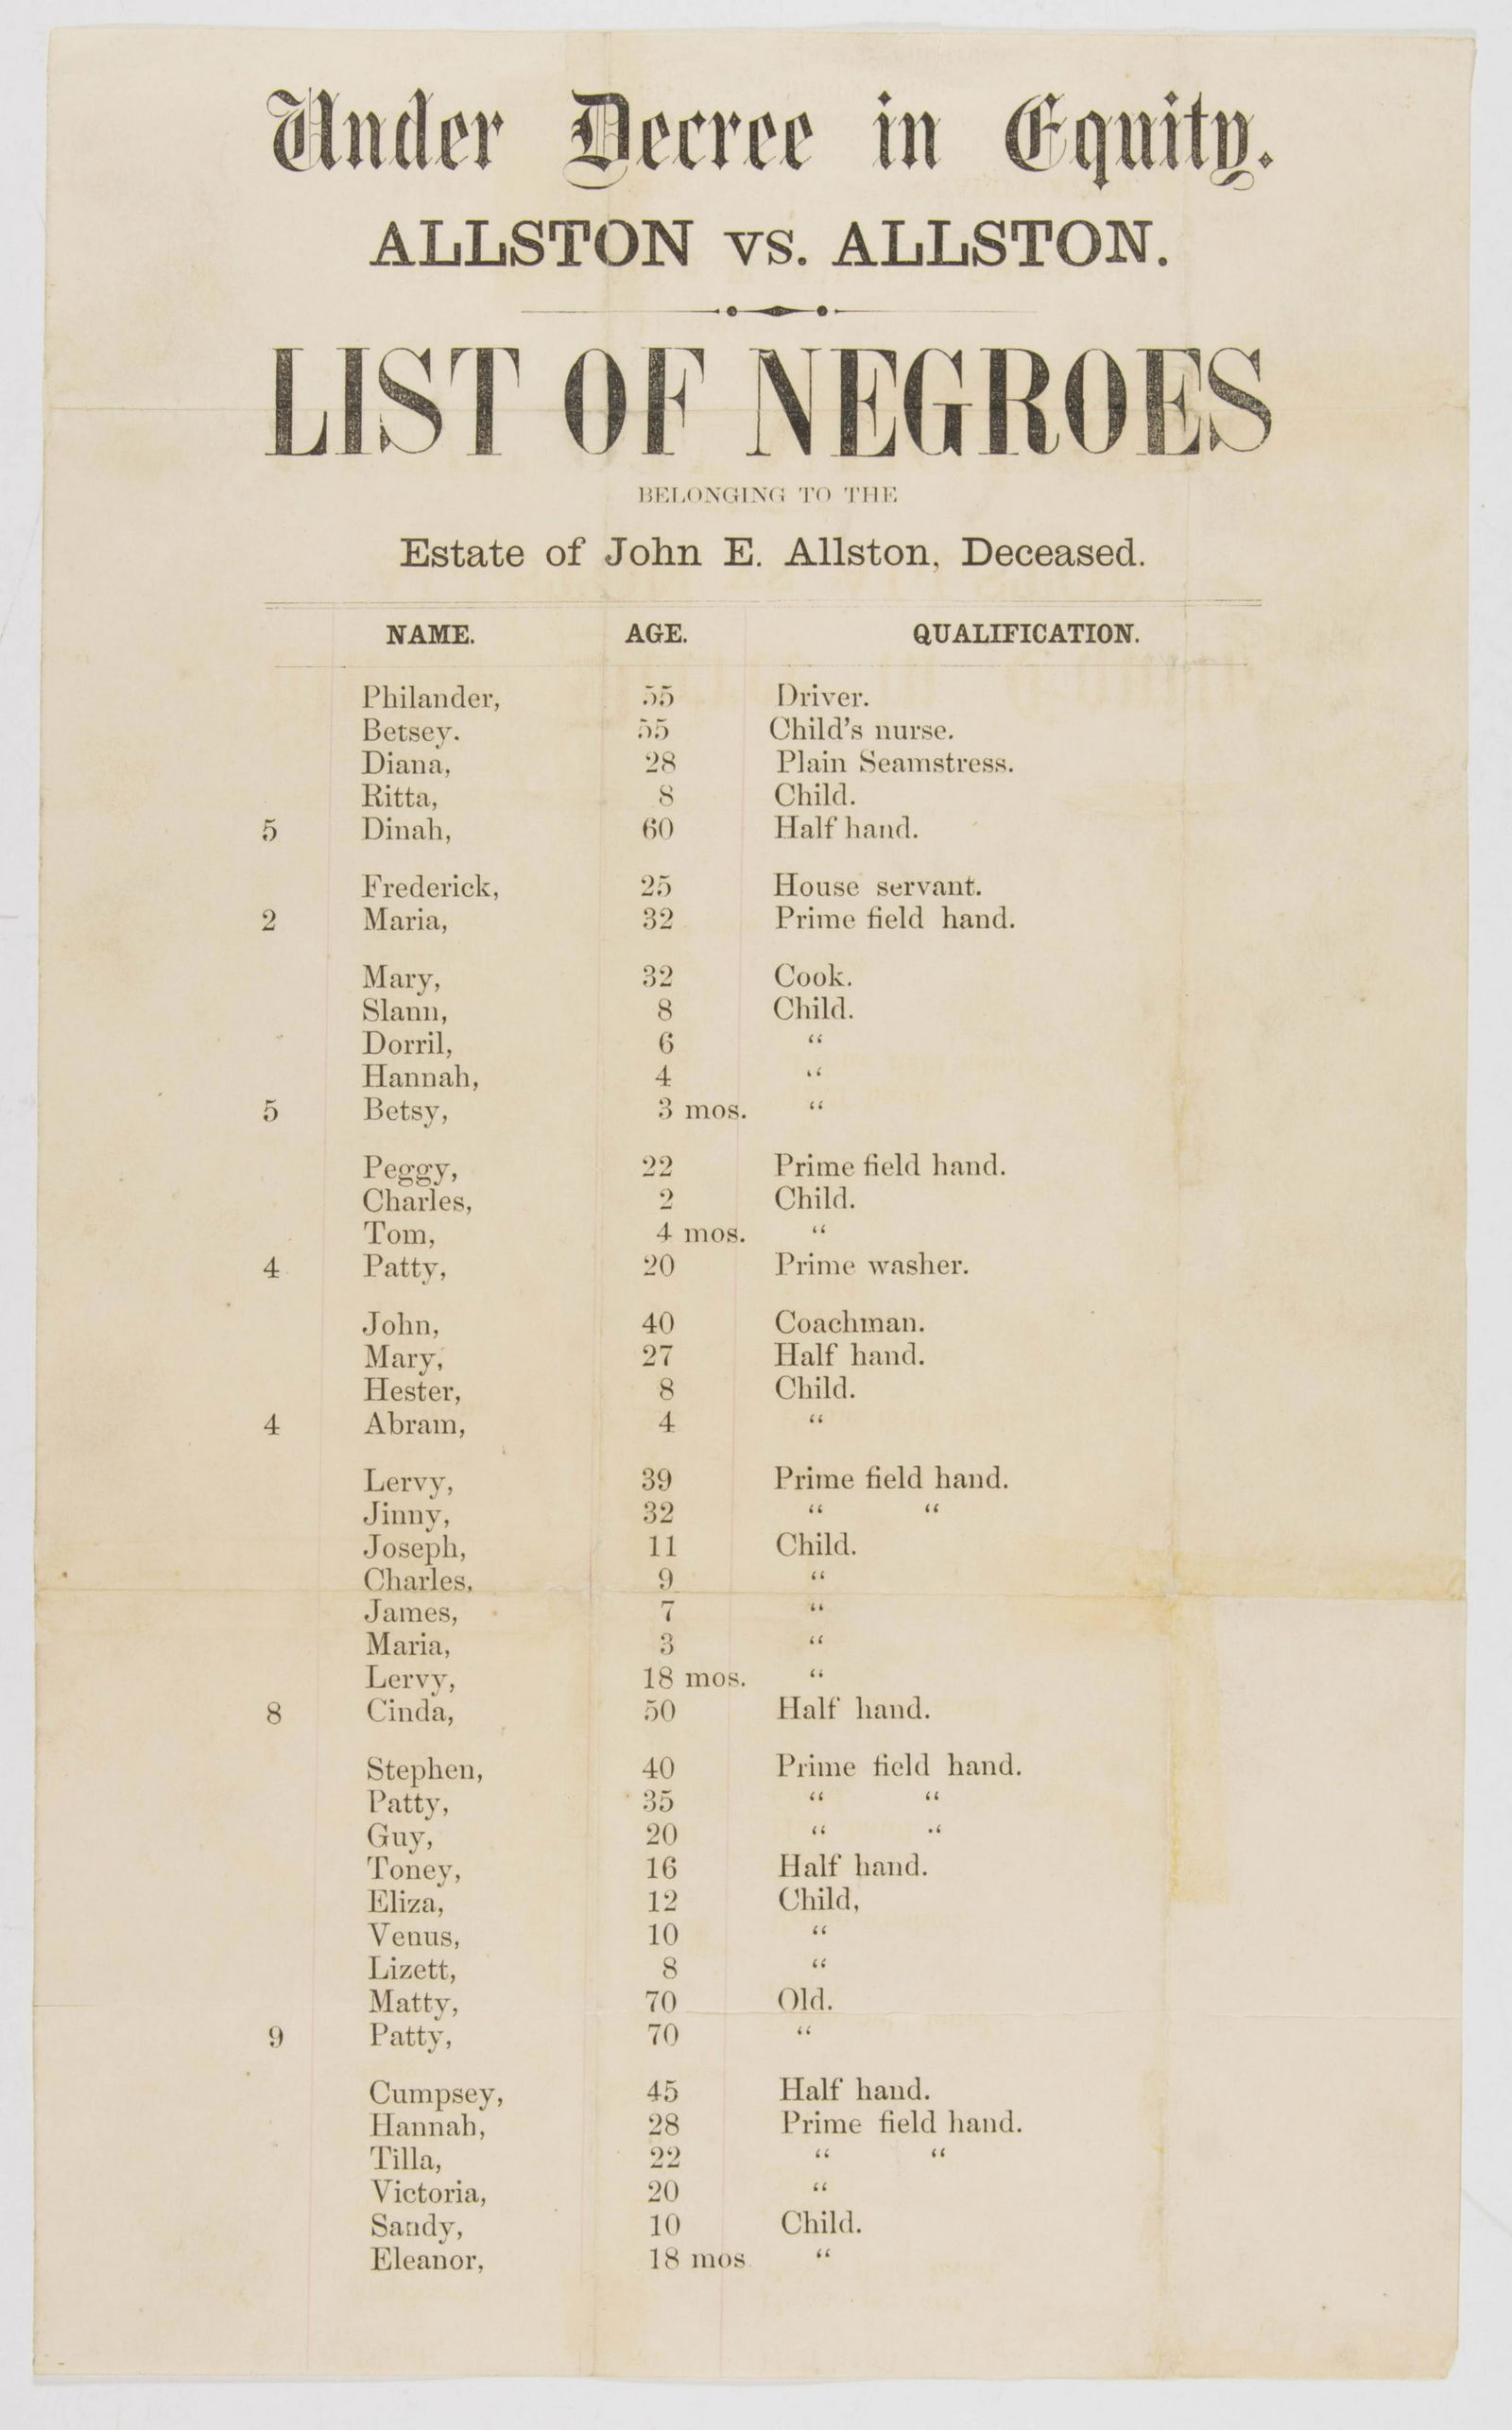 Under Decree in Equity.
ALLSTON vs. ALLSTON.
LIST OF NEGROES
BELONGING TO THE
Estate of John E. Allston, Deceased.
NAME. AGE. QUALIFICATION.
Philander, 55 Driver.
Betsey. 55 Child's nurse.
Diana, 28 Plain Seamstress.
Ritta, 8 Child.
5 Dinah, 60 Half hand.
Frederick, 25 House servant.
2 Maria, 32 Prime field hand.
Mary, 32 Cook.
Slann, 8 Child.
Dorril, 6 “
Hannah, 4 “
5 Betsy, 3 mos. “
Peggy, 22 Prime field hand.
Charles, 2 Child.
Tom, 4 mos. “
4 Patty, 20 Prime washer.
John, 40 Coachman.
Mary, 27 Half hand.
Hester, 8 Child.
4 Abram, 4 “
Lervy, 39 Prime field hand.
Jinny, 32 “ “
Joseph, 11 Child.
Charles, 9 “
James, 7 “
Maria, 3 “
Lervy, 18 mos. “
8 Cinda, 50 Half hand.
Stephen, 40 Prime field hand.
Patty, 35 “ “
Guy, 20 “ “
Toney, 16 Half hand.
Eliza, 12 Child,
Venus, 10 “
Lizett, 8 “
Matty, 70 Old.
9 Patty, 70 “
Cumpsey, 45 Half hand.
Hannah, 28 Prime field hand.
Tilla, 22 “ “
Victoria, 20 “
Sandy, 10 Child.
Eleanor, 18 mos “